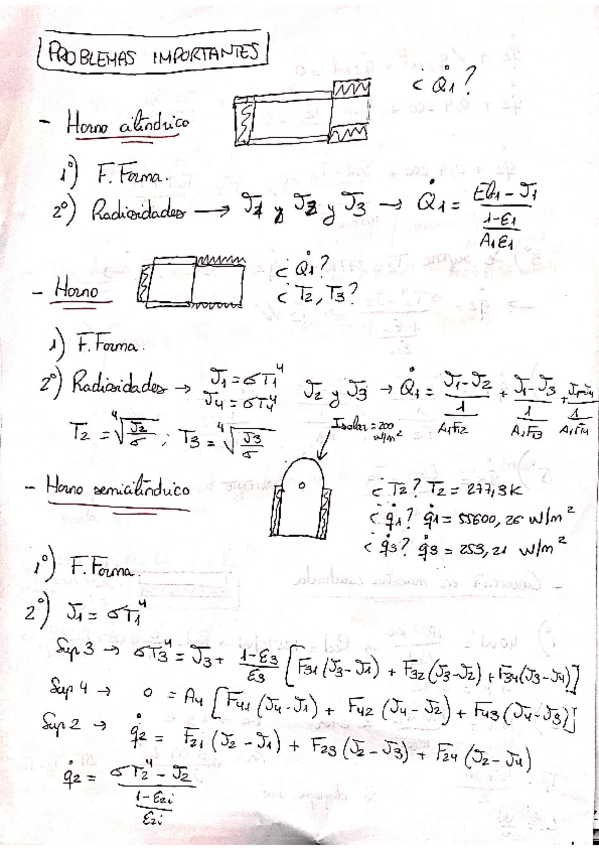 PROBLEMAS IMPORTANTES
¿Q̇1?
- Horno cilíndrico
1º) F. Forma.
2º) Radiosidades → J1 y J2 y J3 → Q̇1 = (Eb1 - J1) / ((1-ε1)/(A1ε1))
¿Q̇1?
- Horno ¿T2, T3?
1) F. Forma.
2º) Radiosidades → J1 = σT1⁴ J2 y J3 → Q̇1 = (J1-J2)/(1/(A1F12)) + (J1-J3)/(1/(A1F13)) +
J4 = σT4⁴
T2 = ⁴√(J2/σ) ; T3 = ⁴√(J3/σ)
Isolar = 200 w/m²
- Horno semicilíndrico
¿T2? T2 = 277,3K
¿q̇1? q̇1 = 55600,26 W/m²
¿q̇3? q̇3 = 253,21 W/m²
1º) F. Forma.
2º) J1 = σT1⁴
Sup 3 → σT3⁴ = J3 + (1-ε3)/ε3 [F31(J3-J1) + F32(J3-J2) + F34(J3-J4)]
Sup 4 → 0 = A4 [F41(J4-J1) + F42(J4-J2) + F43(J4-J3)]
Sup 2 → q̇2 = F21(J2-J1) + F23(J2-J3) + F24(J2-J4)
q̇2 = (σT2⁴ - J2) / ((1-ε2i)/ε2i)